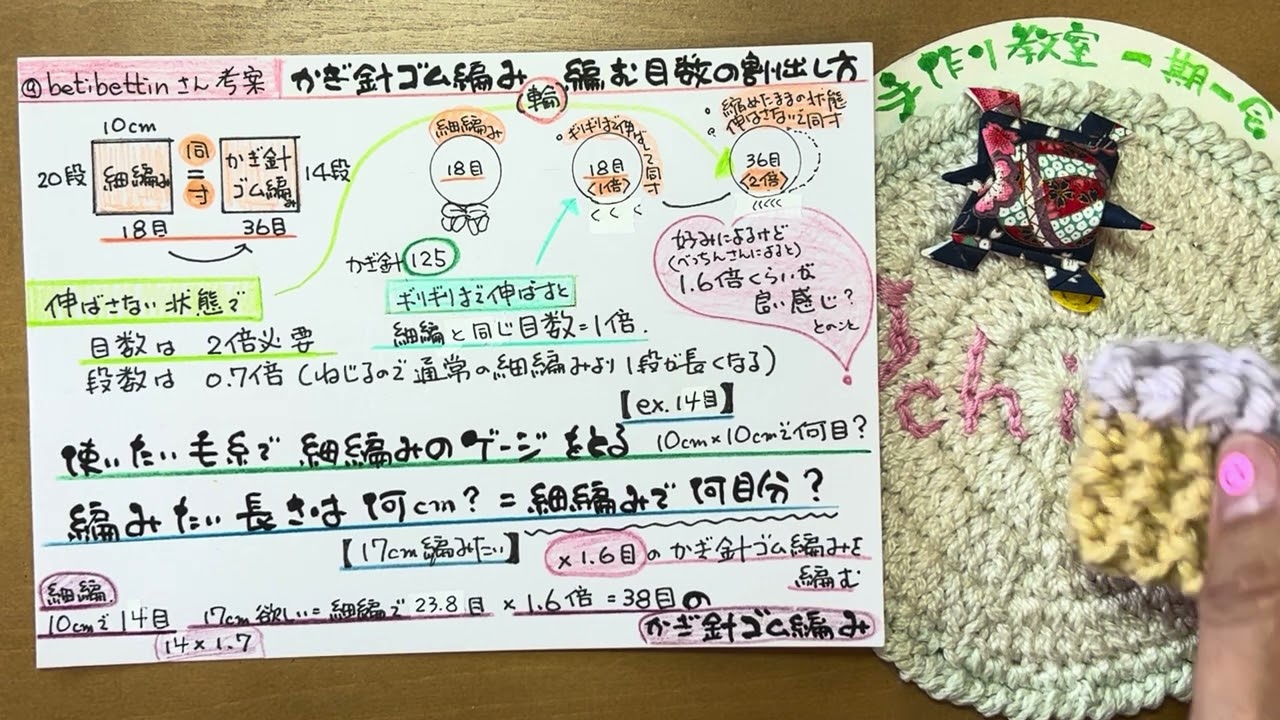 @betibettinさん考案
かぎ針ゴム編み 編む目数の割出し方
輪
10cm
20段
細編み
18目
同
=
寸
かぎ針
ゴム編み
14段
36目
細編み
18目
・ギリギリまで伸ばして同寸
18目
<1倍>
・縮めたままの状態
伸ばさないで同寸
36目
<2倍>
かぎ針125
伸ばさない状態で
目数は 2倍必要
段数は 0.7倍(ねじるので通常の細編みより1段が長くなる)
ギリギリまで伸ばすと
細編と同じ目数=1倍.
好みによるけど
(べっちんさんによると)
1.6倍くらいが
良い感じ?
とのこと
【ex.14目】
使いたい毛糸で細編みのゲージをとる 10cm×10cmで何目?
編みたい長さは何cm?=細編みで何目分?
【17cm編みたい】
×1.6目のかぎ針ゴム編みを
編む
細編
10cmで14目 17cm欲しい=細編で23.8目×1.6倍=38目の
14×1.7
かぎ針ゴム編み
手作り教室 一期一会
chi